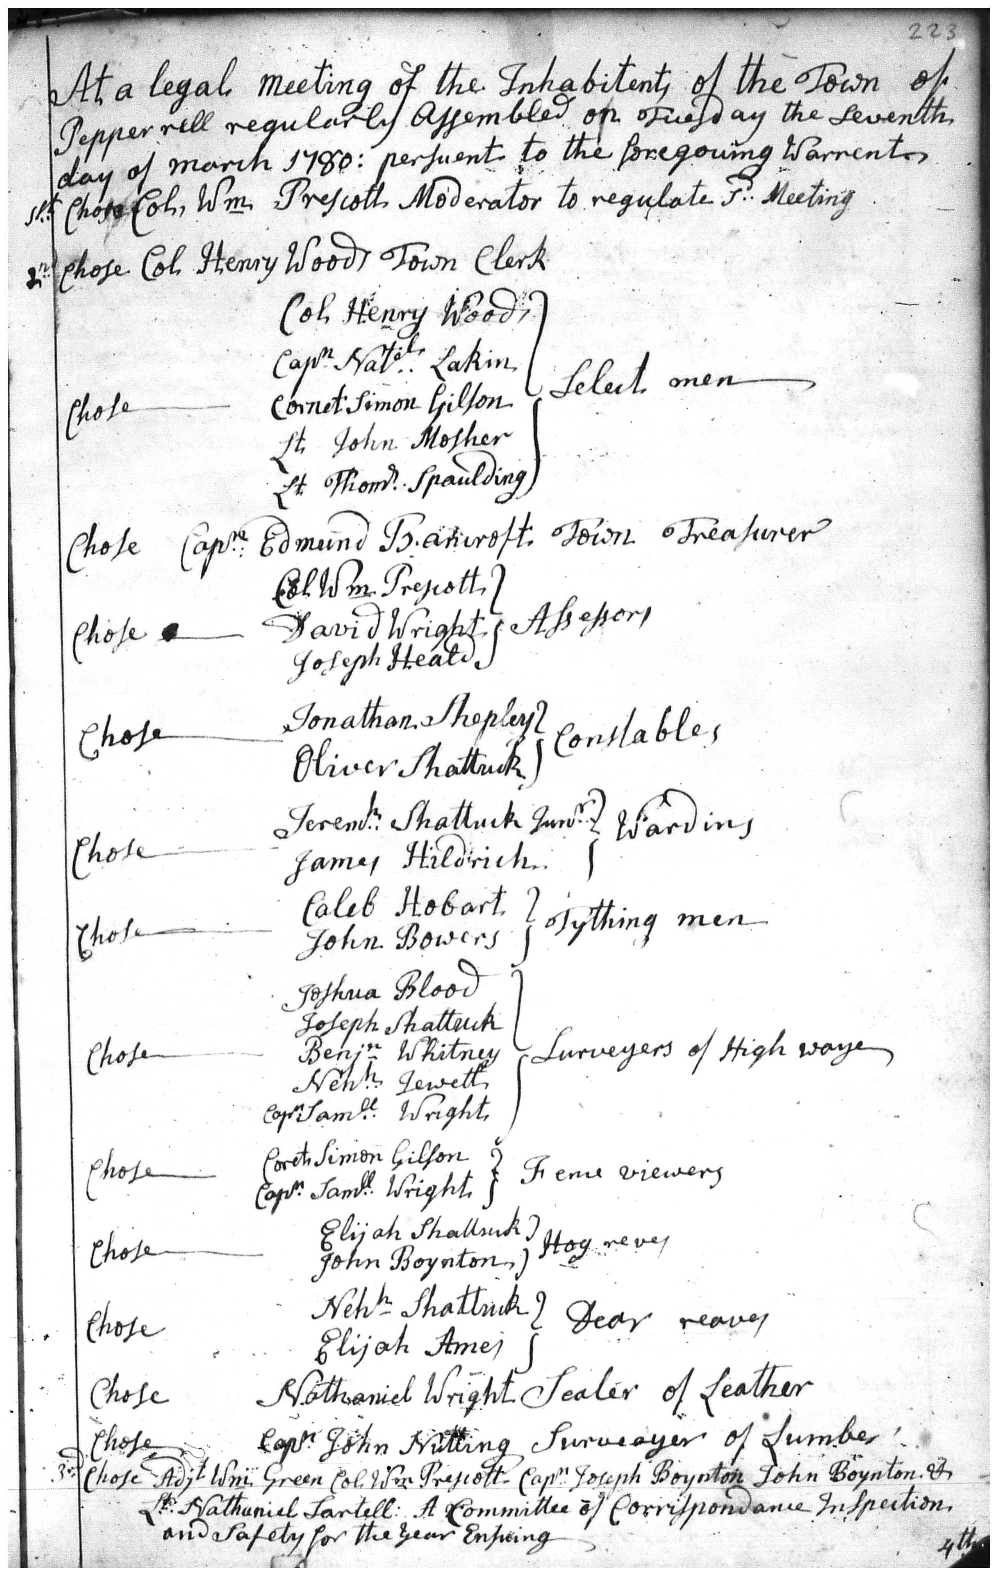 223
At a legal meeting of the Inhabitents of the Town of
Pepperrell regularly Assembled on Tuesday the Seventh
day of march 1780: persuent to the foregouing Warrent
1st Chose Col. Wm. Prescott Moderator to regulate Sd. Meeting
2n Chose Col Henry Woods Town Clerk
Col. Henry Woods
Capn Natil. Lakin
Chose Cornet Simon Gilson Select men
Lt John Mosher
Lt. Thoms. Spaulding
Chose Capn. Edmund Bancroft Town Treasurer
Col. Wm. Prescott
Chose David Wright Assessors
Joseph Heald
Chose Jonathan Shepley Constables
Oliver Shattuck
Jeremh. Shattuck Junr. Wardins
Chose James Hildrich
Chose Caleb Hobart Tything men
John Bowers
Joshua Blood
Joseph Shattuck
Chose Benjn Whitney Surveyers of High waye
Nehh. Jewett
Capn Samll. Wright
Chose Coret Simon Gilson Fence viewers
Capn. Samll. Wright
Chose Elijah Shattuck Hog reves
John Boynton
Chose Nehh Shattuck Dear reaves
Elijah Ames
Chose Nathaniel Wright Sealer of Leather
Chose Capn John Nutting Surveayer of Lumber
3rd Chose Adjt Wm. Green Col. Wm Prescott Capn Joseph Boynton John Boynton &
Lt. Nathaniel Sartell: A Committee of Corrispondance Inspection
and Safety for the year Ensuing
4th